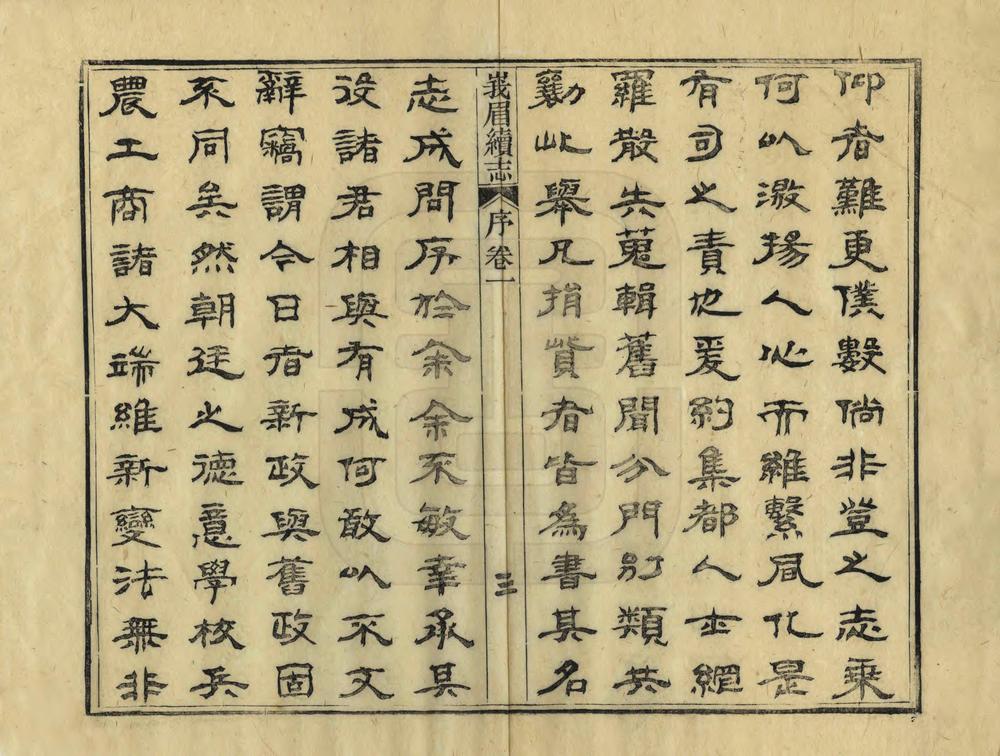 仰者難更僕數倘非登之志乗
何以激揚人心而維繫風化是
有司之責也爰約集都人士網
羅散失蒐輯舊聞分門別類共
勷此舉凡捐貲者皆為書其名
峩眉續志 序卷一 三
志成問序於余余不敏幸承其
役諸君相與有成何敢以不文
辭竊謂今日者新政與舊政固
不同矣然朝廷之德意學校兵
農工商諸大端維新變法無非